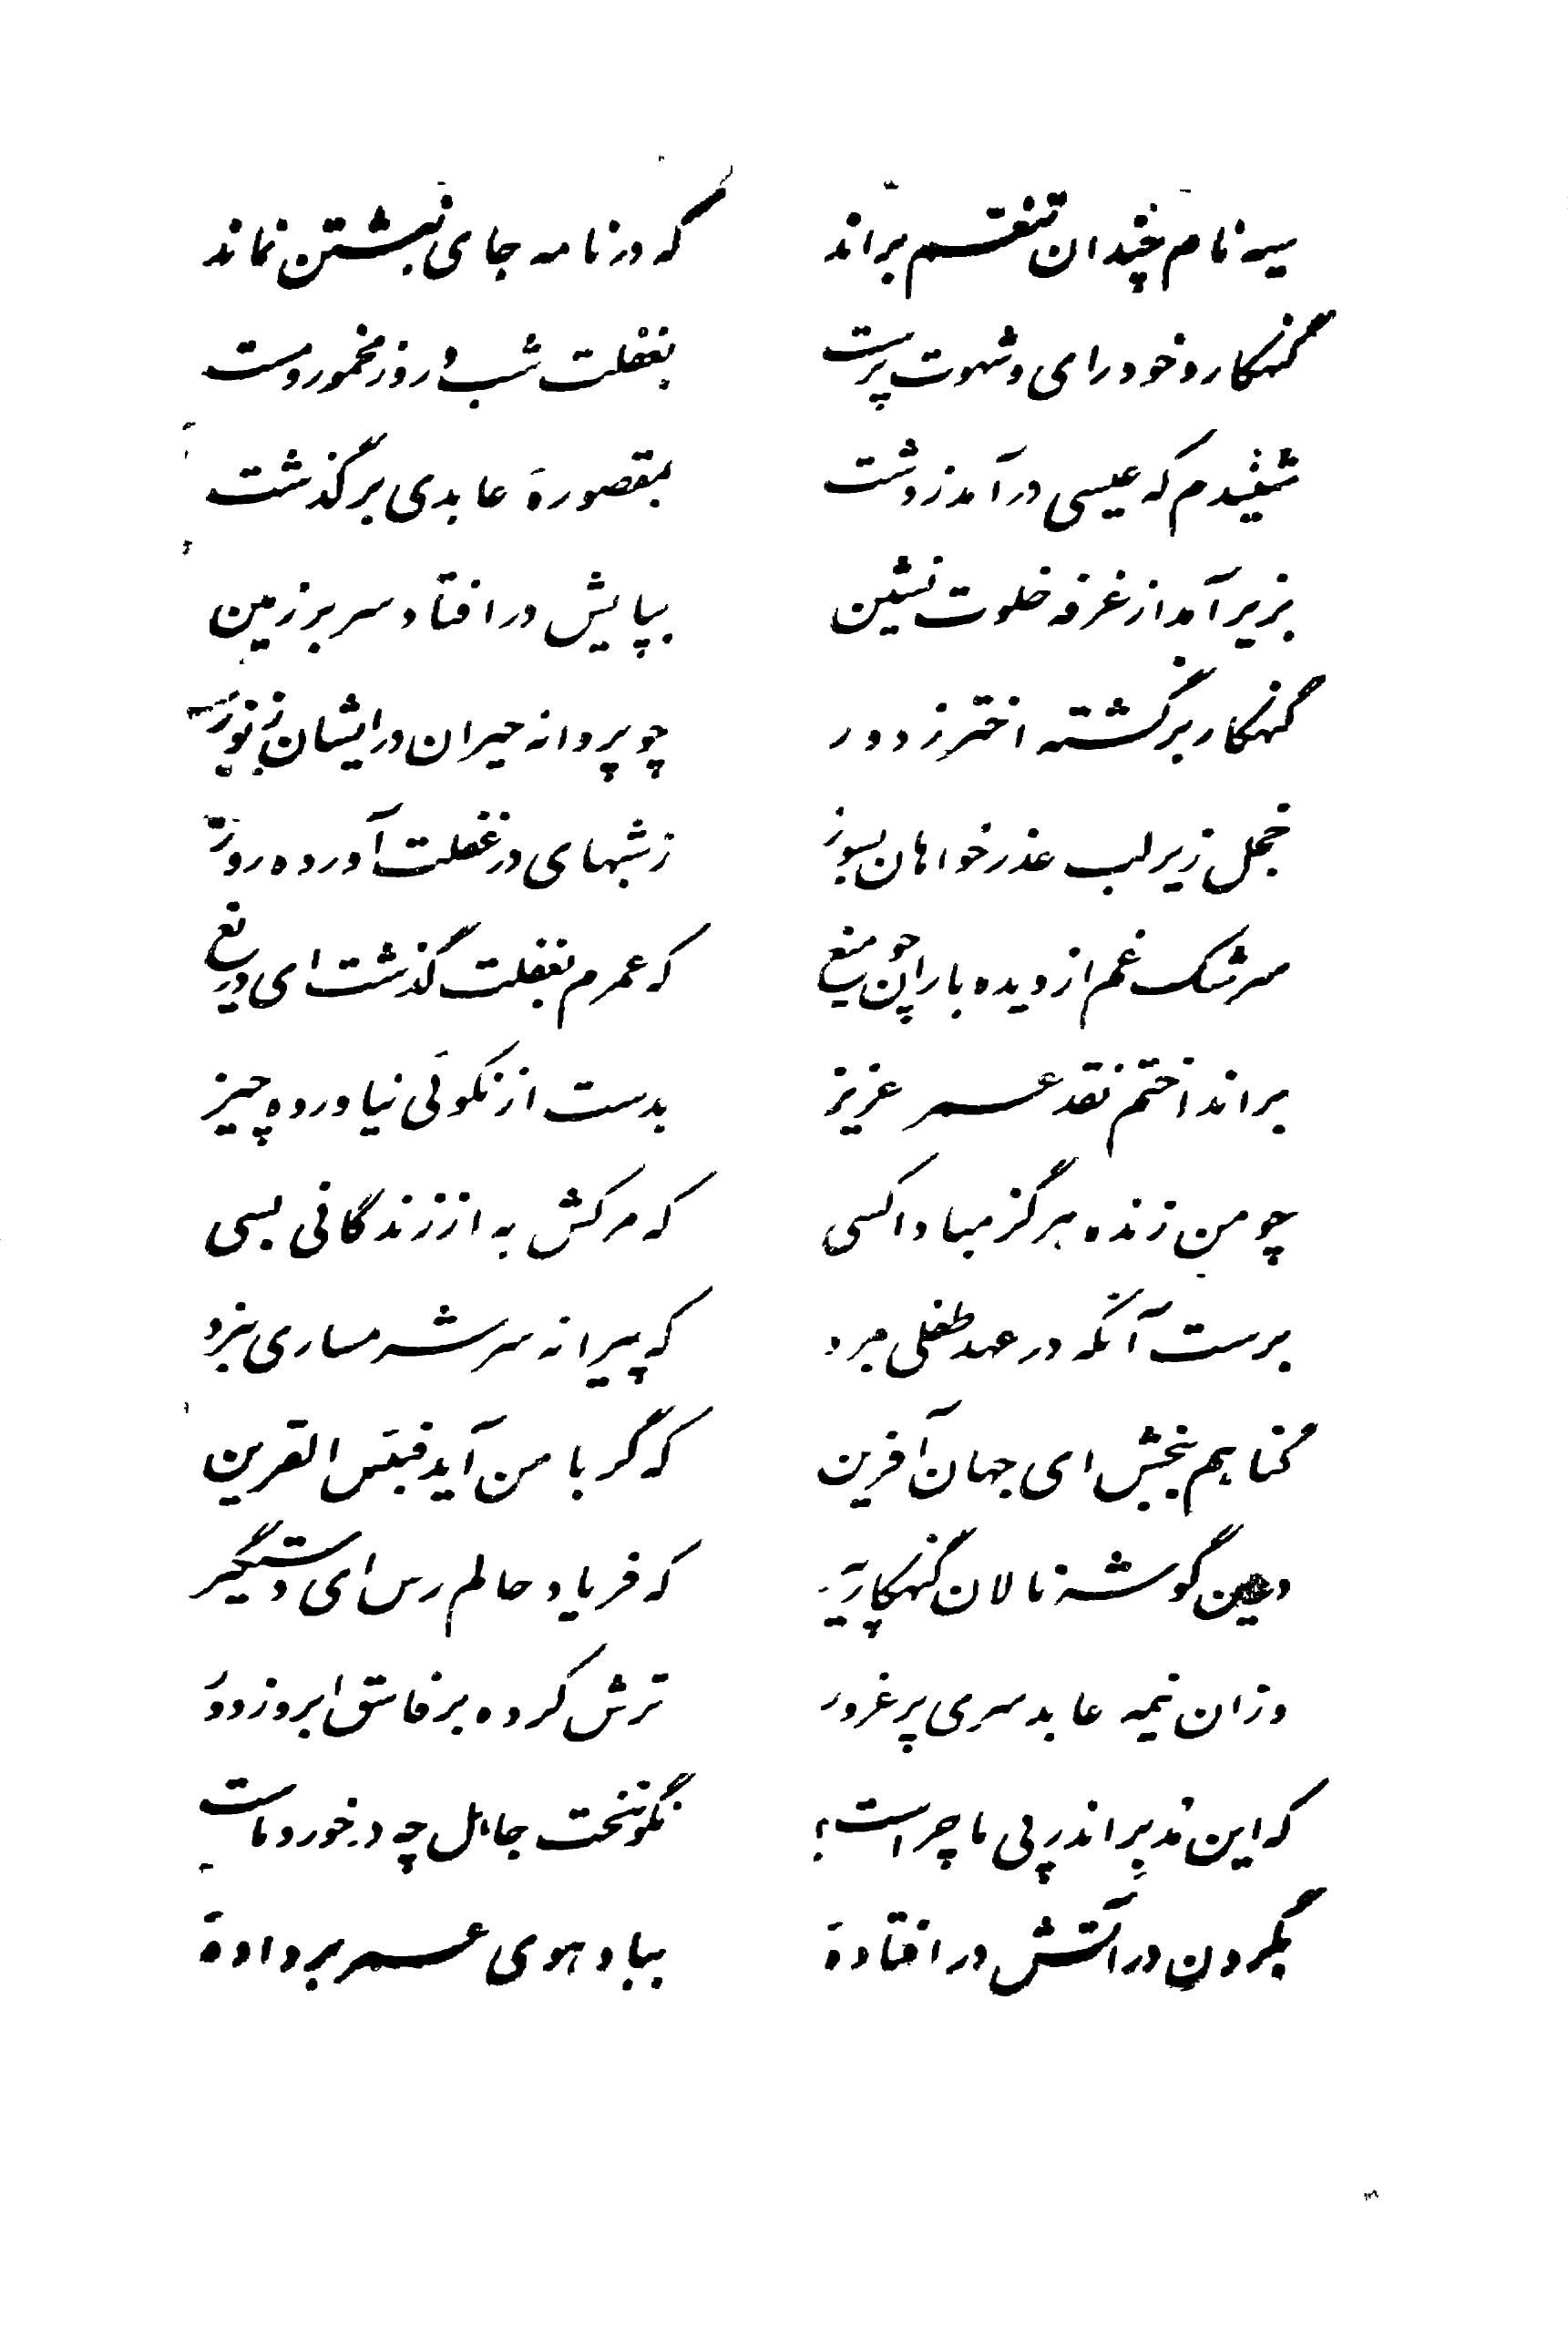 سیه نامه چندان تنعم براند که در نامه جای نبشتن نماند
گنهکار و خودرای و شهوت پرست بغفلت شب و روز مخمور و مست
شنیدم که عیسی در آمد ز دشت بمقصورهٔ عابدی بر گذشت
بزیر آمد از غرفه خلوت نشین بپایش در افتاد سر بر زمین
گنهکار برگشته اختر ز دور چو پروانه حیران در ایشان ز نور
خجل زیر لب عذرخواهان بسوز ز شبهای در غفلت آورده روز
سرشک غم از دیده باران چو میغ که عمرم بغفلت گذشت ای دریغ
برانداختم نقد عمر عزیز بدست از نکوئی نیاورده چیز
چو من زنده هرگز مبادا کسی که مرگش به از زندگانی بسی
برست آنکه در عهد طفلی مرد که پیرانه سر شرمساری نبرد
گناهم ببخش ای جهان آفرین که گر با من آید فبئس القرین
درین گوشه نالان گنهکار پیر که فریاد حالم رس ای دستگیر
وزان نیمه عابد سری پر غرور ترش کرده بر فاسق ابرو ز دور
که این مُدبِر اندر پی ما چراست؟ نگونبخت جاهل چه در خورد ماست
بگردن در آتش در افتادهٔ بباد هوی عمر بر دادهٔ